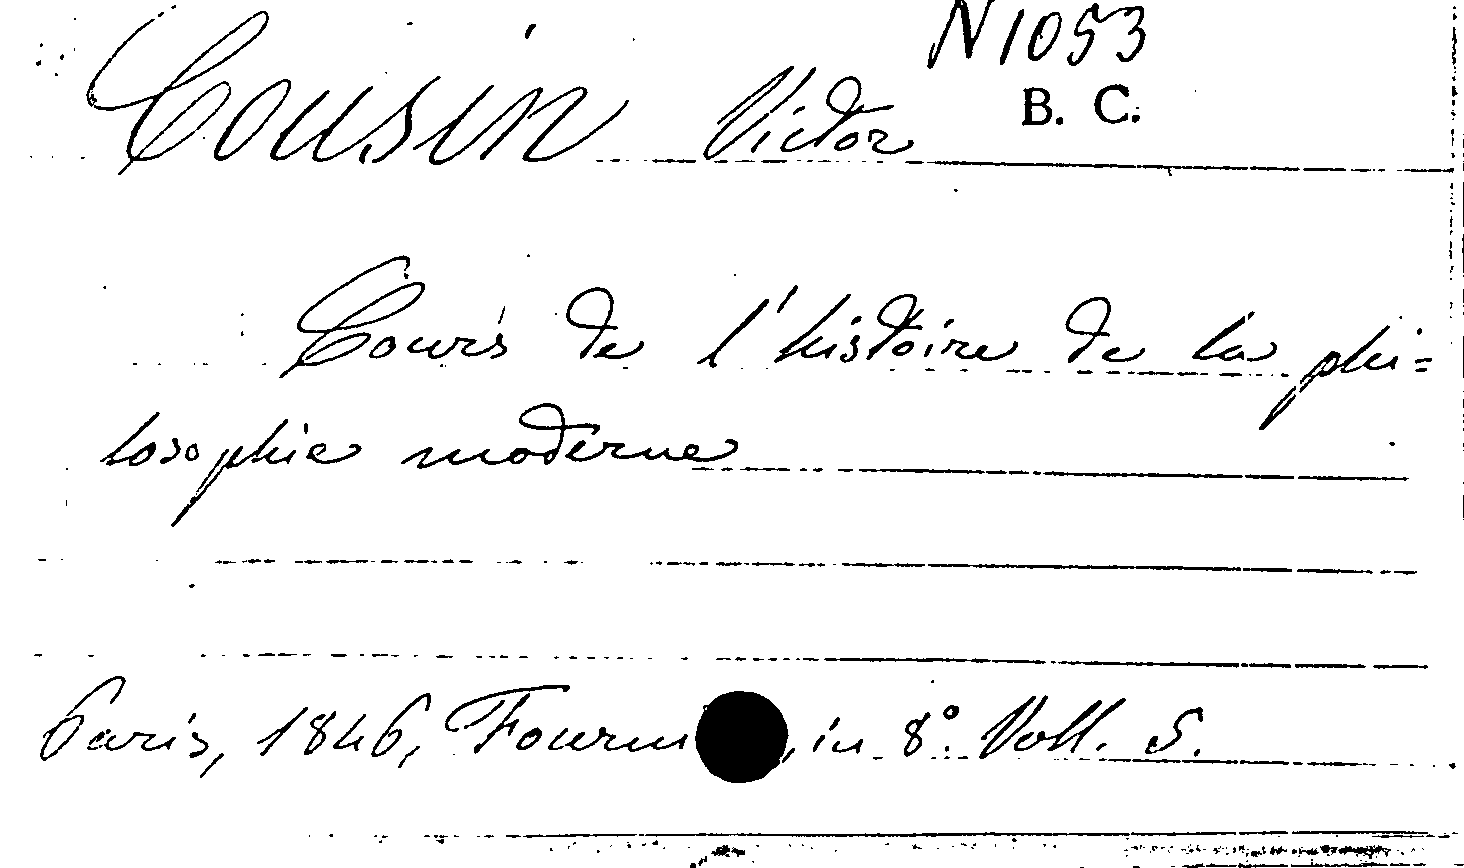 N 1053
Cousin Victor B. C.
Cours de l'histoire de la phi=
losophie moderne
Paris, 1846, , in 8°. Voll. 5.